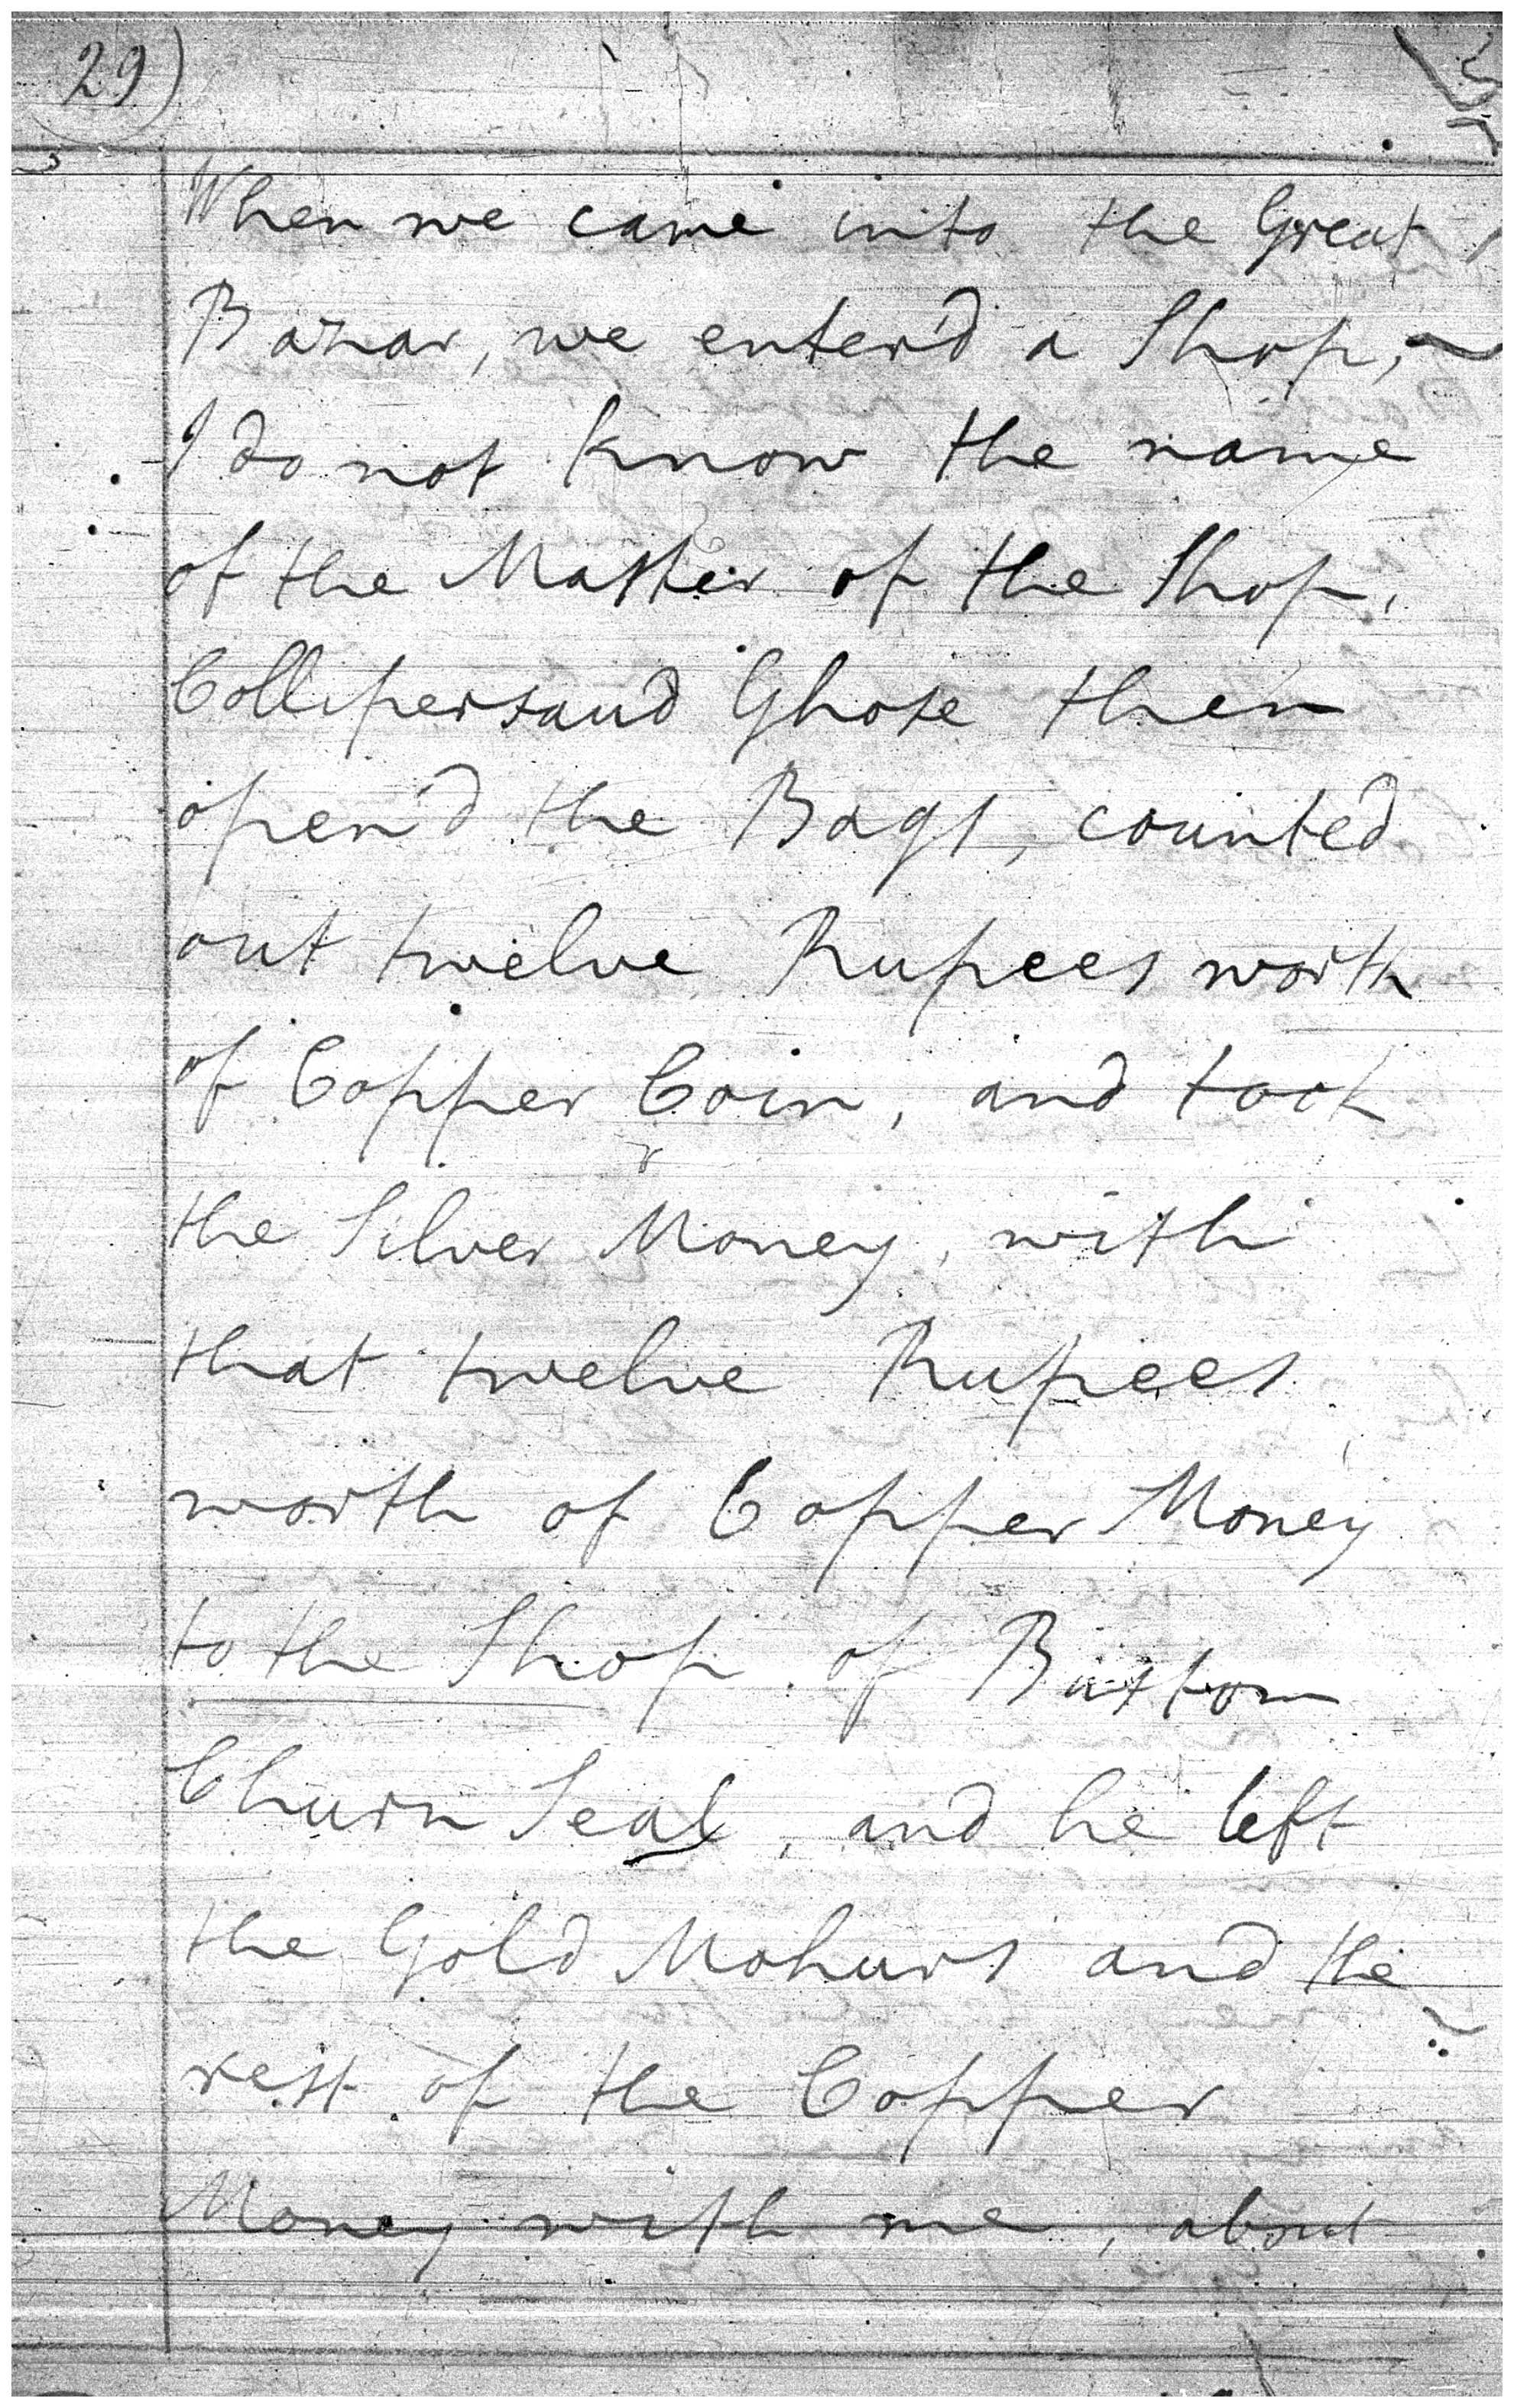 29)
When we came into the Great
Bazar, we enter'd a Shop,
I do not know the name
of the Master of the Shop,
Collipersaud Ghose then
open'd the Bags, counted
out twelve Rupees worth
of Copper Coin, and took
the Silver Money, with
that twelve Rupees
worth of Copper Money
to the Shop of Buttom
Churn Seal, and he left
the Gold Mohurs and the
rest of the Copper
Money with me, about